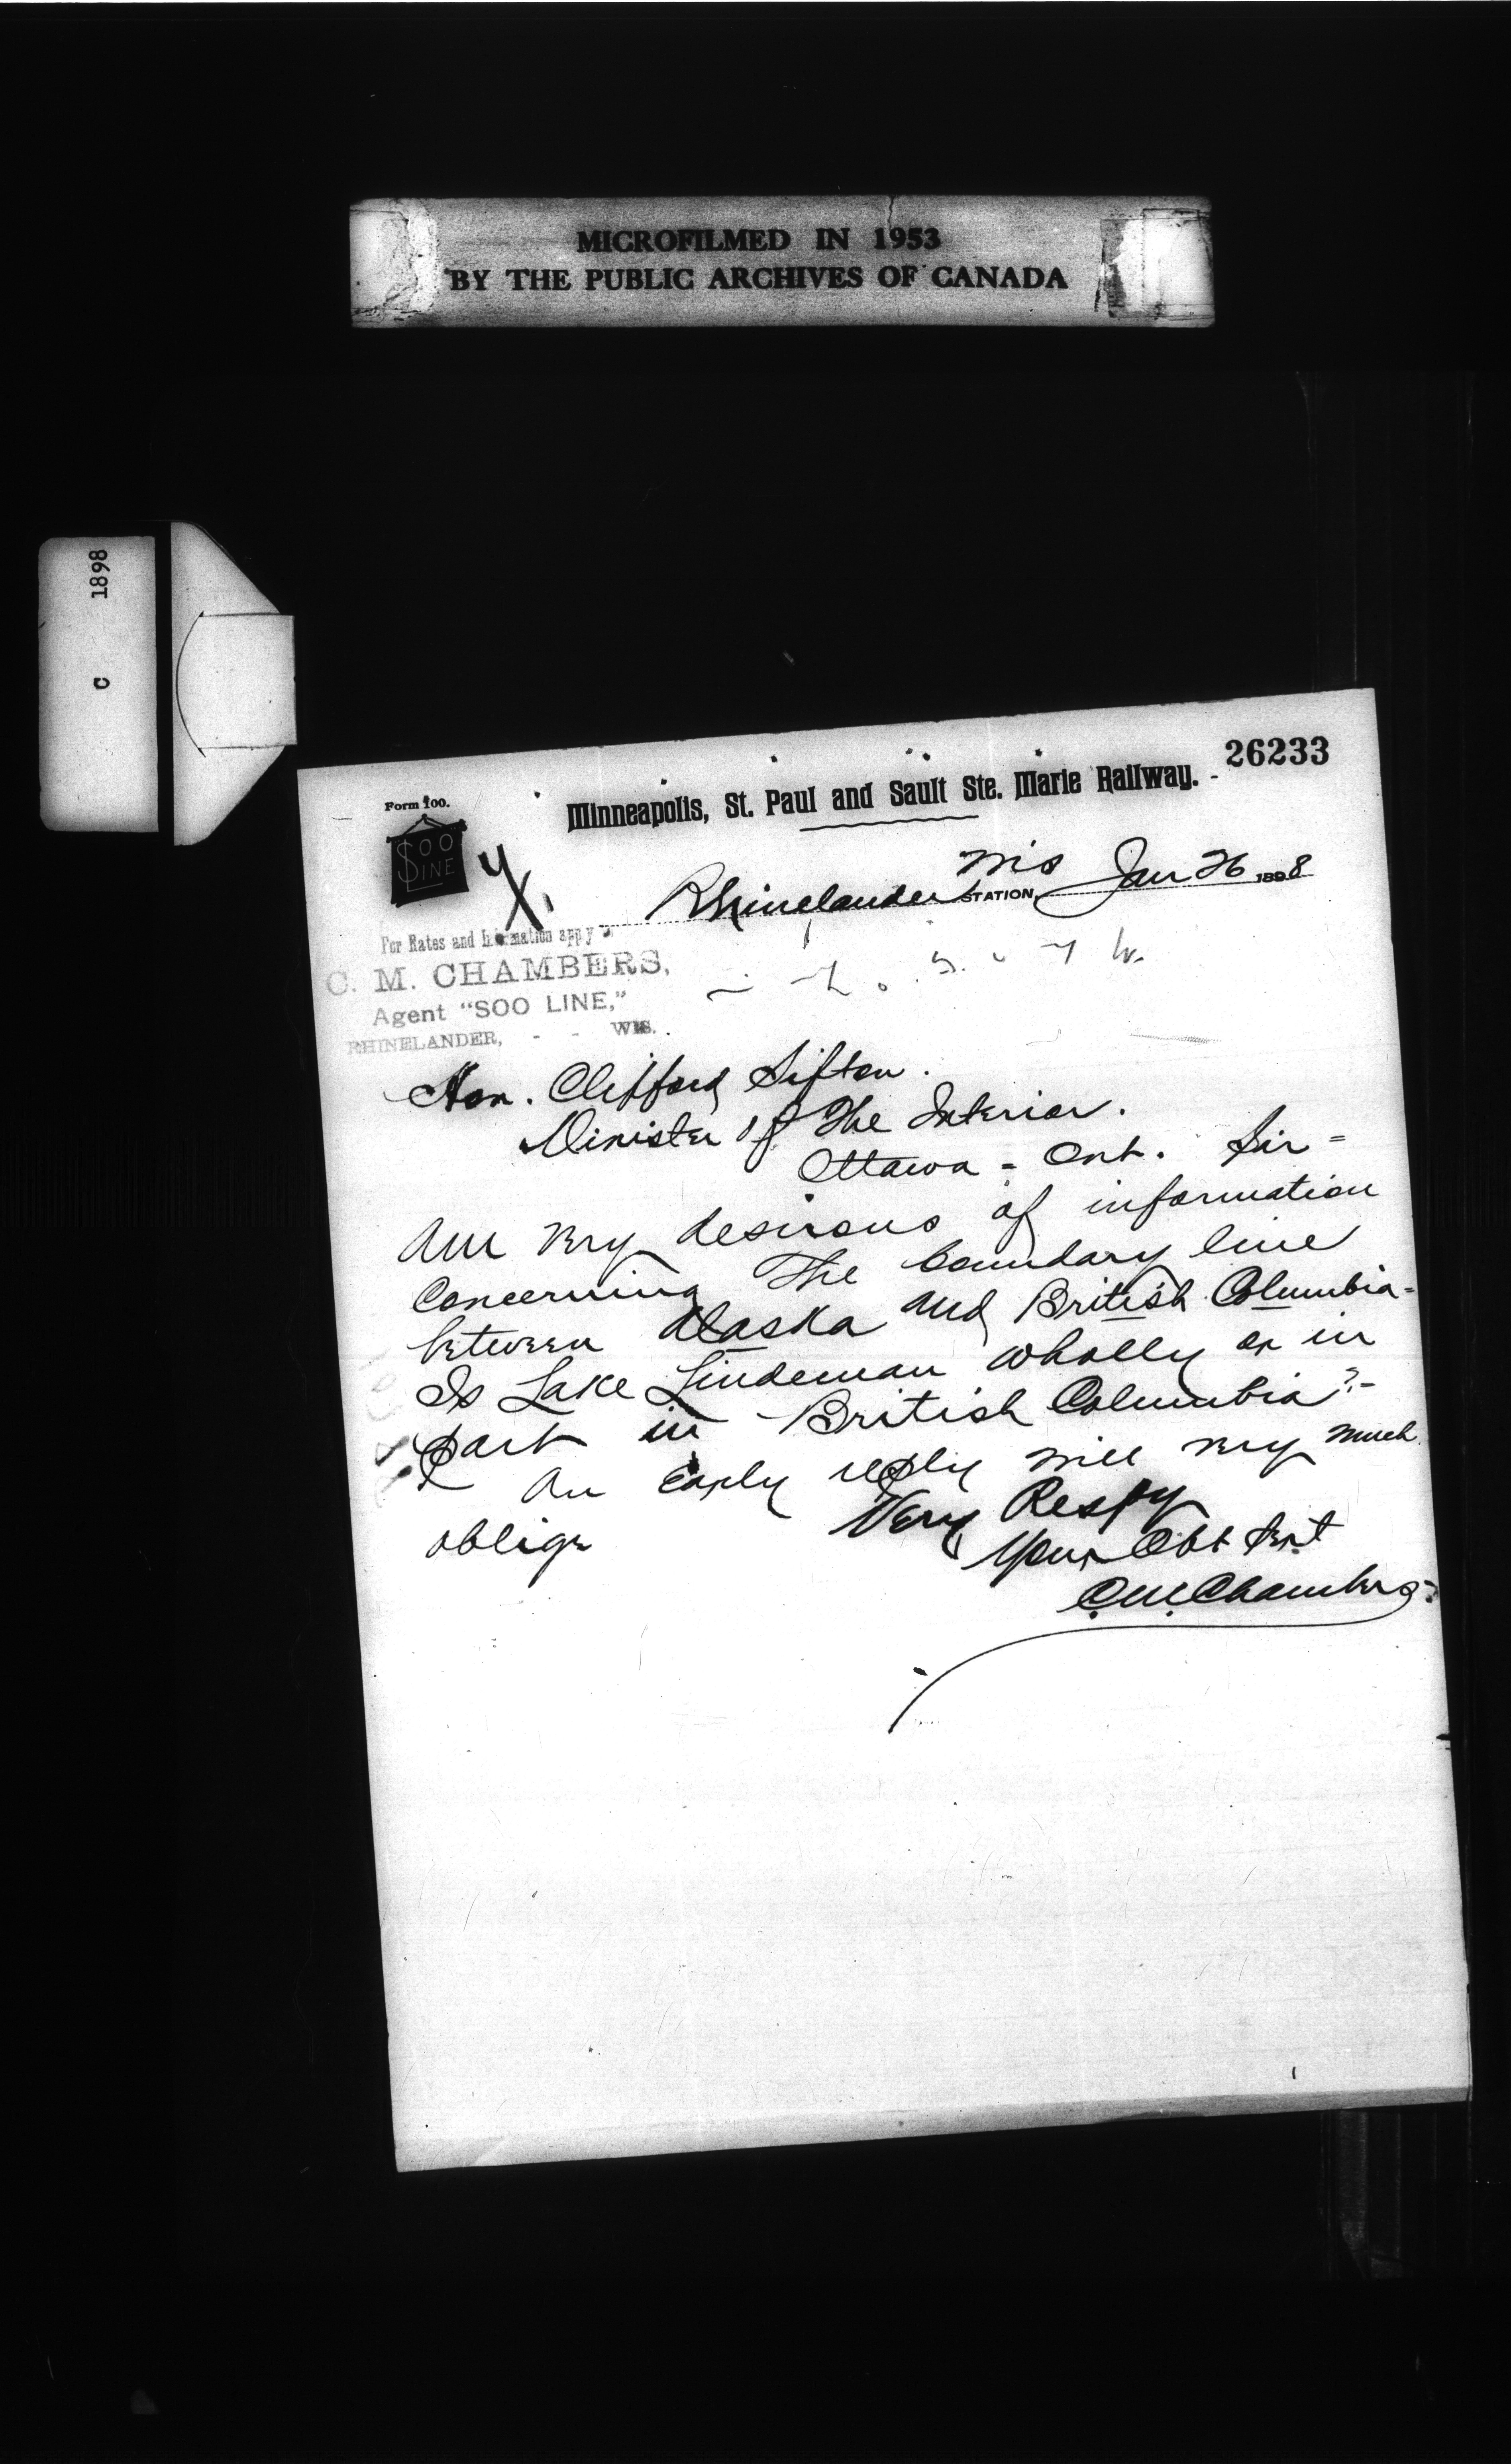 MICROFILMED IN 1953
BY THE PUBLIC ARCHIVES OF CANADA
C 1898
26233
Form 100.
Minneapolis, St. Paul and Sault Ste. Marie Railway.
SOO LINE
Rhinelander Wis STATION, Jan 26 1898
For Rates and Information apply to
C. M. CHAMBERS,
Agent "SOO LINE,"
RHINELANDER, - - WIS.
Hon. Clifford Sifton.
Minister of The Interior.
Ottawa - Ont. Sir =
Am very desirous of information
concerning The boundary line
between Alaska and British Columbia =
Is Lake Lindeman wholly or in
part in British Columbia ? -
An early reply will very much
oblige
Very Respy
Your Obt Sert
C.M. Chambers